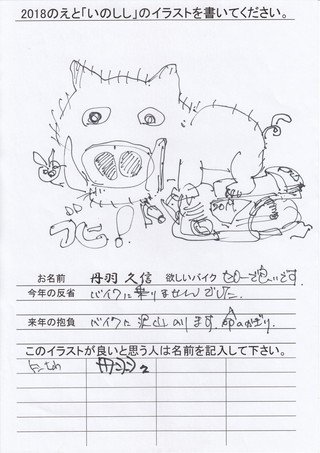 2018のえと「いのしし」のイラストを書いてください。
お名前 丹羽 久信 欲しいバイク
今年の反省 バイクに乗りませんでした
来年の抱負 バイクに沢山のります。命のかぎり。
このイラストが良いと思う人は名前を記入して下さい。